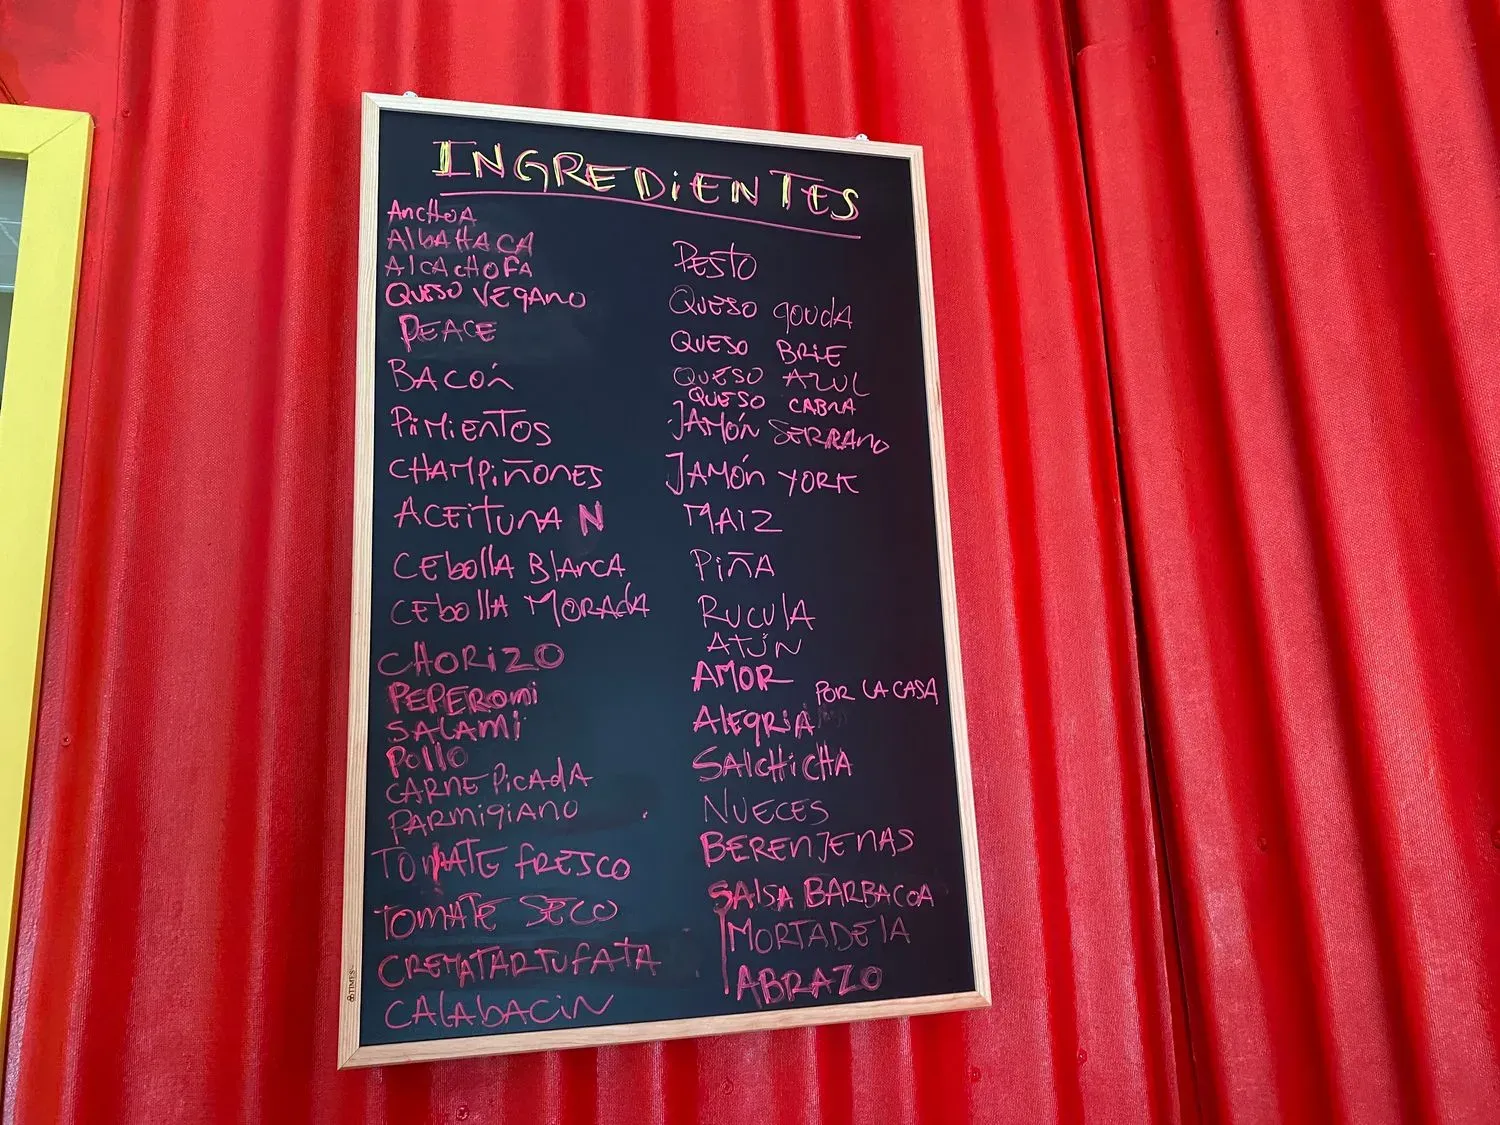 INGREDIENTES
AncHoA
AlbAHACA
AlCAcHOFA
QUESO VEgAnO
PEACE
BACOń
PiMiEnTOS
CHAMPiÑOnES
ACEiTUnA N
CEbollA BlAnCA
CEbollA MORAdA
CHORiZO
PEPERomi
SALAMi
POllO
CARNE PiCAdA
PARMigiAnO
TOMATE fRESCO
TOMATE SECO
CREMATARTUfATA
CALAbACiN
PESTO
QUESO gOUdA
QUESO BRiE
QUESO AZUL
QUESO CABRA
JAMÓN SERRAnO
JAMÓn YORK
MAIZ
PiÑA
RUCUlA
ATÚN
AMOR
POR LA CASA
AlEgRiA
SAlCHiCHA
NUECES
BERENJENAS
SAlSA BARBACOA
MORTADElA
ABRAZO
TIMES